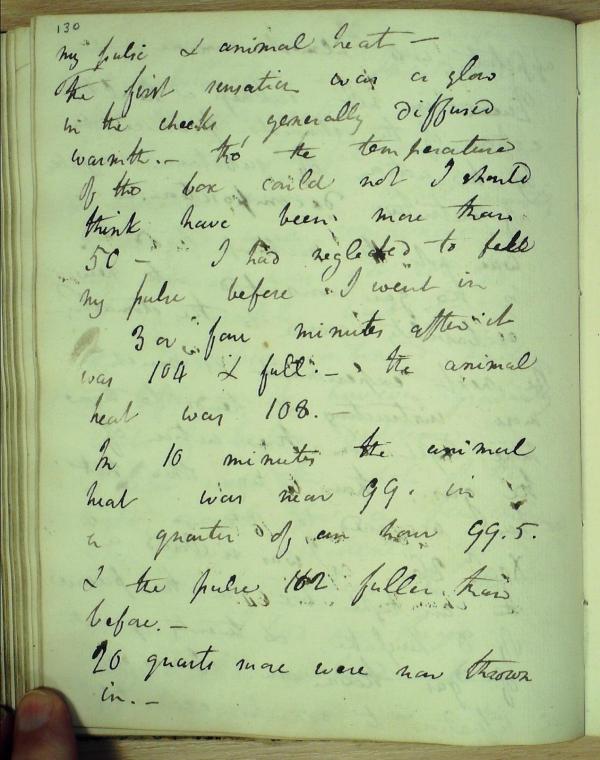 130
my pulse & animal heat —
the first sensation was a glow
in the cheeks generally diffused
warmth. — tho' the temperature
of the box could not I should
think have been more than
50 — I had neglected to feel
my pulse before I went in
3 or four minutes after it
was 104 & full. — the animal
heat was 108. —
In 10 minutes the animal
heat was near 99. in
a quarter of an hour 99.5.
& the pulse 102 fuller than
before. —
20 quarts more were now thrown
in. —